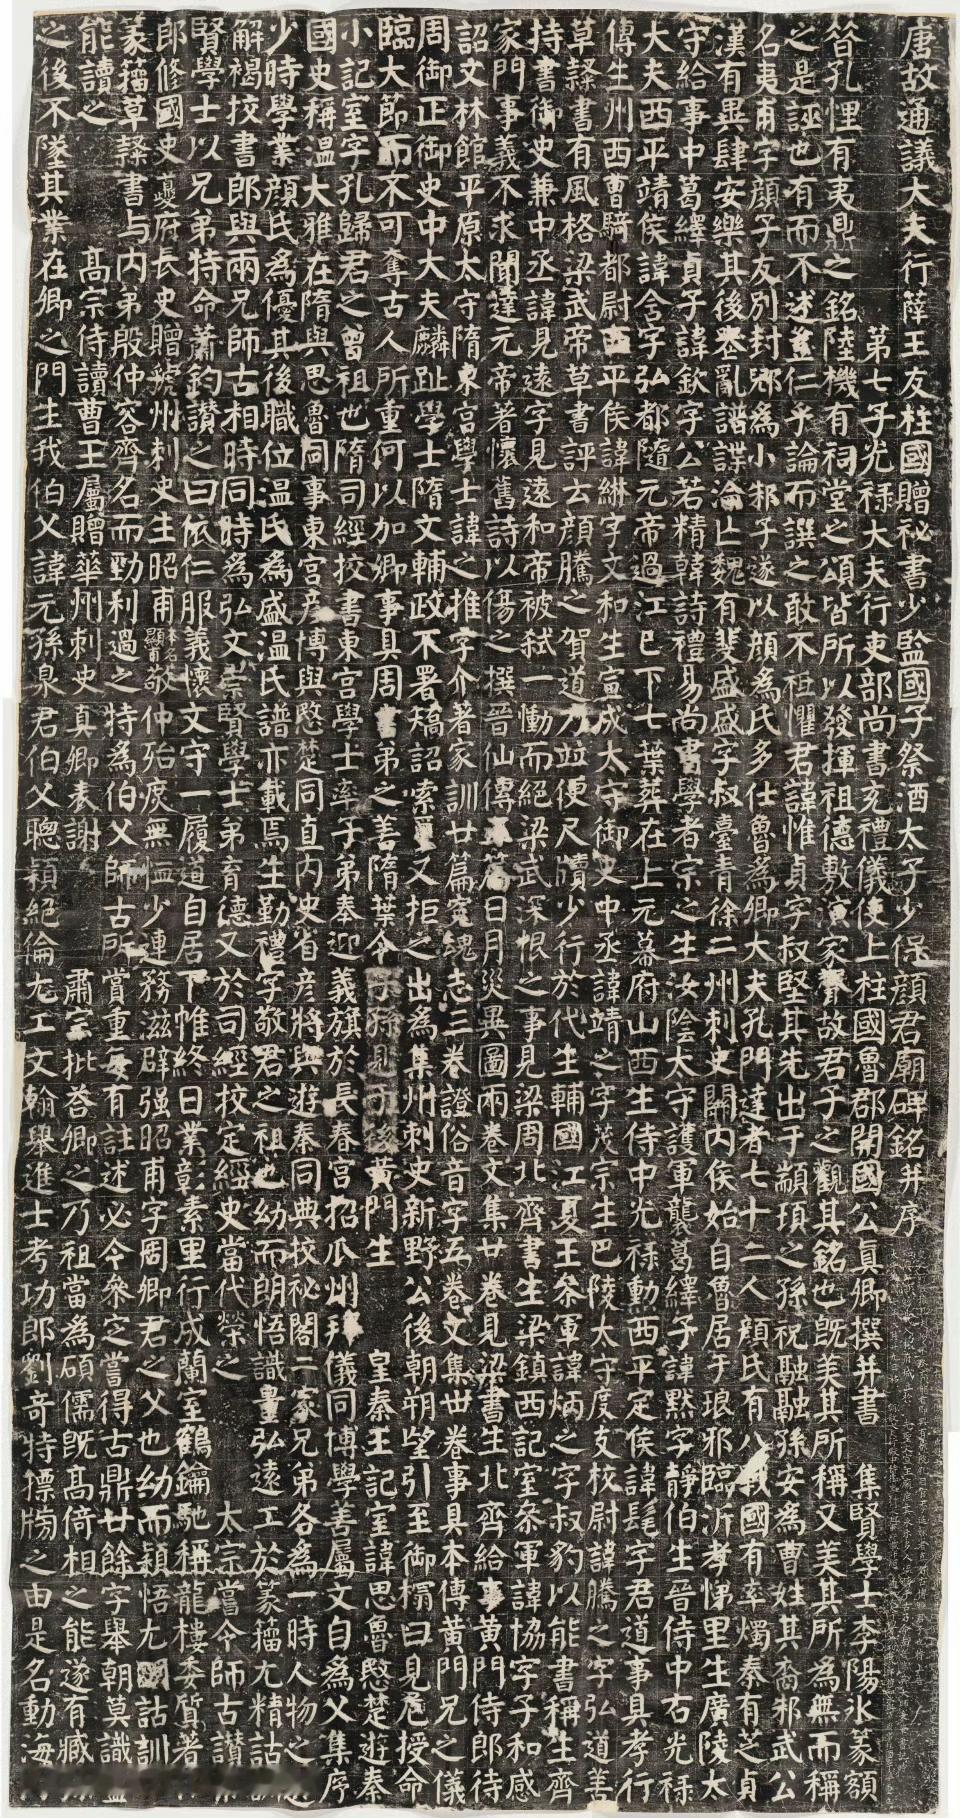 唐故通議大夫行薛王友柱國贈秘書少監國子祭酒太子少保顏君廟碑銘并序
第七子光祿大夫行吏部尚書充禮儀使上柱國魯郡開國公真卿撰并書 集賢學士李陽冰篆額
昔孔悝有夷鼎之銘陸機有祠堂之頌皆所以發揮祖德敷演家聲故君子之觀其銘也既美其所稱又美其所為無而稱
之是誣也有而不述豈仁乎論而譔之敢不祗懼君諱惟貞字叔堅其先出于顓頊之孫祝融融孫安為曹姓其裔邾武公
名夷甫字顏子友別封郳為小邾子遂以顏為氏多仕魯為卿大夫孔門達者七十二人顏氏有八戰國有率燭秦有芝貞
漢有異肆安樂其後喪亂譜諜淪亡魏有斐盛盛字叔臺青徐二州刺史關內侯始自魯居于琅邪臨沂孝悌里生廣陵太
守給事中葛繹貞子諱欽字公若精韓詩禮易尚書學者宗之生汝陰太守護軍襲葛繹子諱默字靜伯生晉侍中右光祿
大夫西平靖侯諱含字弘都隨元帝過江已下七葉葬在上元幕府山西生侍中光祿勳西平定侯諱髦字君道事具孝行
傳生州西曹騎都尉西平侯諱綝字文和生宣城太守御史中丞諱靖之字茂宗生巴陵太守度支校尉諱騰之字弘道善
草隸書有風格梁武帝草書評云顏騰之賀道力並便尺牘少行於代生輔國江夏王參軍諱炳之字叔豹以能書稱生齊
持書御史兼中丞諱見遠字見遠和帝被弒一慟而絕梁武深恨之事見梁周北齊書生梁鎮西記室參軍諱協字子和感
家門事義不求聞達元帝著懷舊詩以傷之撰晉仙傳五篇日月災異圖兩卷文集廿卷見梁書生北齊給事黃門侍郎待
詔文林館平原太守隋東宮學士諱之推字介著家訓廿篇冤魂志三卷證俗音字五卷文集卅卷事具本傳黃門兄之儀
周御正御史中大夫麟趾學士隋文輔政不署矯詔索璽又拒之出為集州刺史新野公後朝朔望引至御榻曰見危授命
臨大節而不可奪古人所重何以加卿事具周書弟之善隋葉令子孫見于後黃門生 皇秦王記室諱思魯愍楚遊秦
小記室字孔歸君之曾祖也隋司經校書東宮學士率子弟奉迎義旗於長春宮招瓜州拜儀同博學善屬文自為父集序
國史稱溫大雅在隋與思魯同事東宮彥博與愍楚同直內史省彥將與遊秦同典校祕閣二家兄弟各為一時人物之
少時學業顏氏為優其後職位溫氏為盛溫氏譜亦載焉生勤禮字敬君之祖也幼而朗悟識量弘遠工於篆籀尤精詁
解褐校書郎與兩兄師古相時同時為弘文崇賢學士弟育德又於司經校定經史當代榮之 太宗嘗令師古讚
賢學士以兄弟特命蕭鈞讚之曰依仁服義懷文守一履道自居下帷終日業彰素里行成蘭室鶴籥馳稱龍樓委質著
郎修國史夔府長史贈虢州刺史生昭甫本名顯甫敬仲殆庶無恤少連務滋辟强昭甫字周卿君之父也幼而穎悟尤明詁訓
篆籀草隸書与內弟殷仲容齊名而勁利過之特為伯父師古所賞重每有註述必令參定嘗得古鼎廿餘字舉朝莫識盡
能讀之 高宗侍讀曹王屬贈華州刺史真卿表謝 肅宗批答卿之乃祖當為碩儒既高倚相之能遂有臧
之後不墜其業在卿之門生我伯父諱元孫泉君伯父聰穎絕倫尤工文翰舉進士考功郎劉奇特標牓之由是名動海